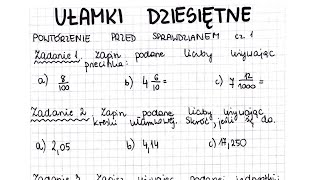 UŁAMKI DZIESIĘTNE
POWTÓRZENIE PRZED SPRAWDZIANEM cz. 1
Zadanie 1. Zapisz podane liczby używając
przecinka:
a) 8/100 b) 4 6/10 = c) 7 12/1000 =
Zadanie 2 Zapisz podane liczby używając
kreski ułamkowej. Skróć, jeśli się da.
a) 2,05 b) 4,14 c) 17,250
Zadanie 3. Zapisz używając podanej jednostki: